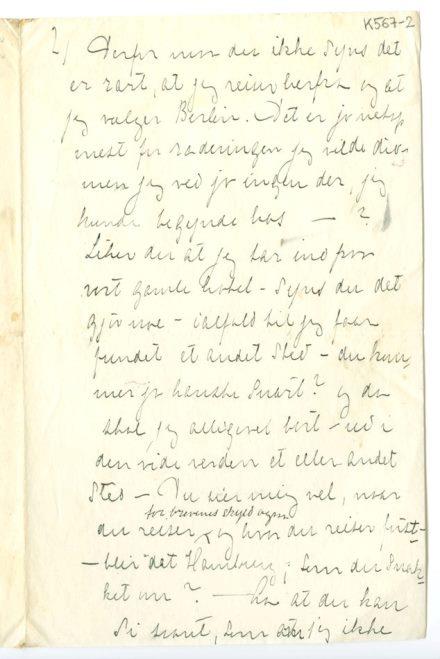 K567-2
2/ Derfor maa du ikke synes det
er rart, at jeg reiser herfra og at
jeg vælger Berlin. Det er jo netop
mest for raderingen jeg vilde dit –
men jeg ved jo ingen der, jeg
kunde begynde hos — ?
Liker du at jeg tar ind paa
vort gamle hotel – Synes du det
gjør noe – ialfald til jeg faar
fundet et andet Sted – du kom-
mer jo kanske snart? og da
skal jeg alligevel bort – ud i
den vide verden et eller andet
Sted – Du sier mig vel, naar
for brevenes skyld ogsaa
du reiser, og hvor du reiser, først –
– blir det Hamburg, som du snak-
ket om? — at du kan
si saant, som at jeg ikke